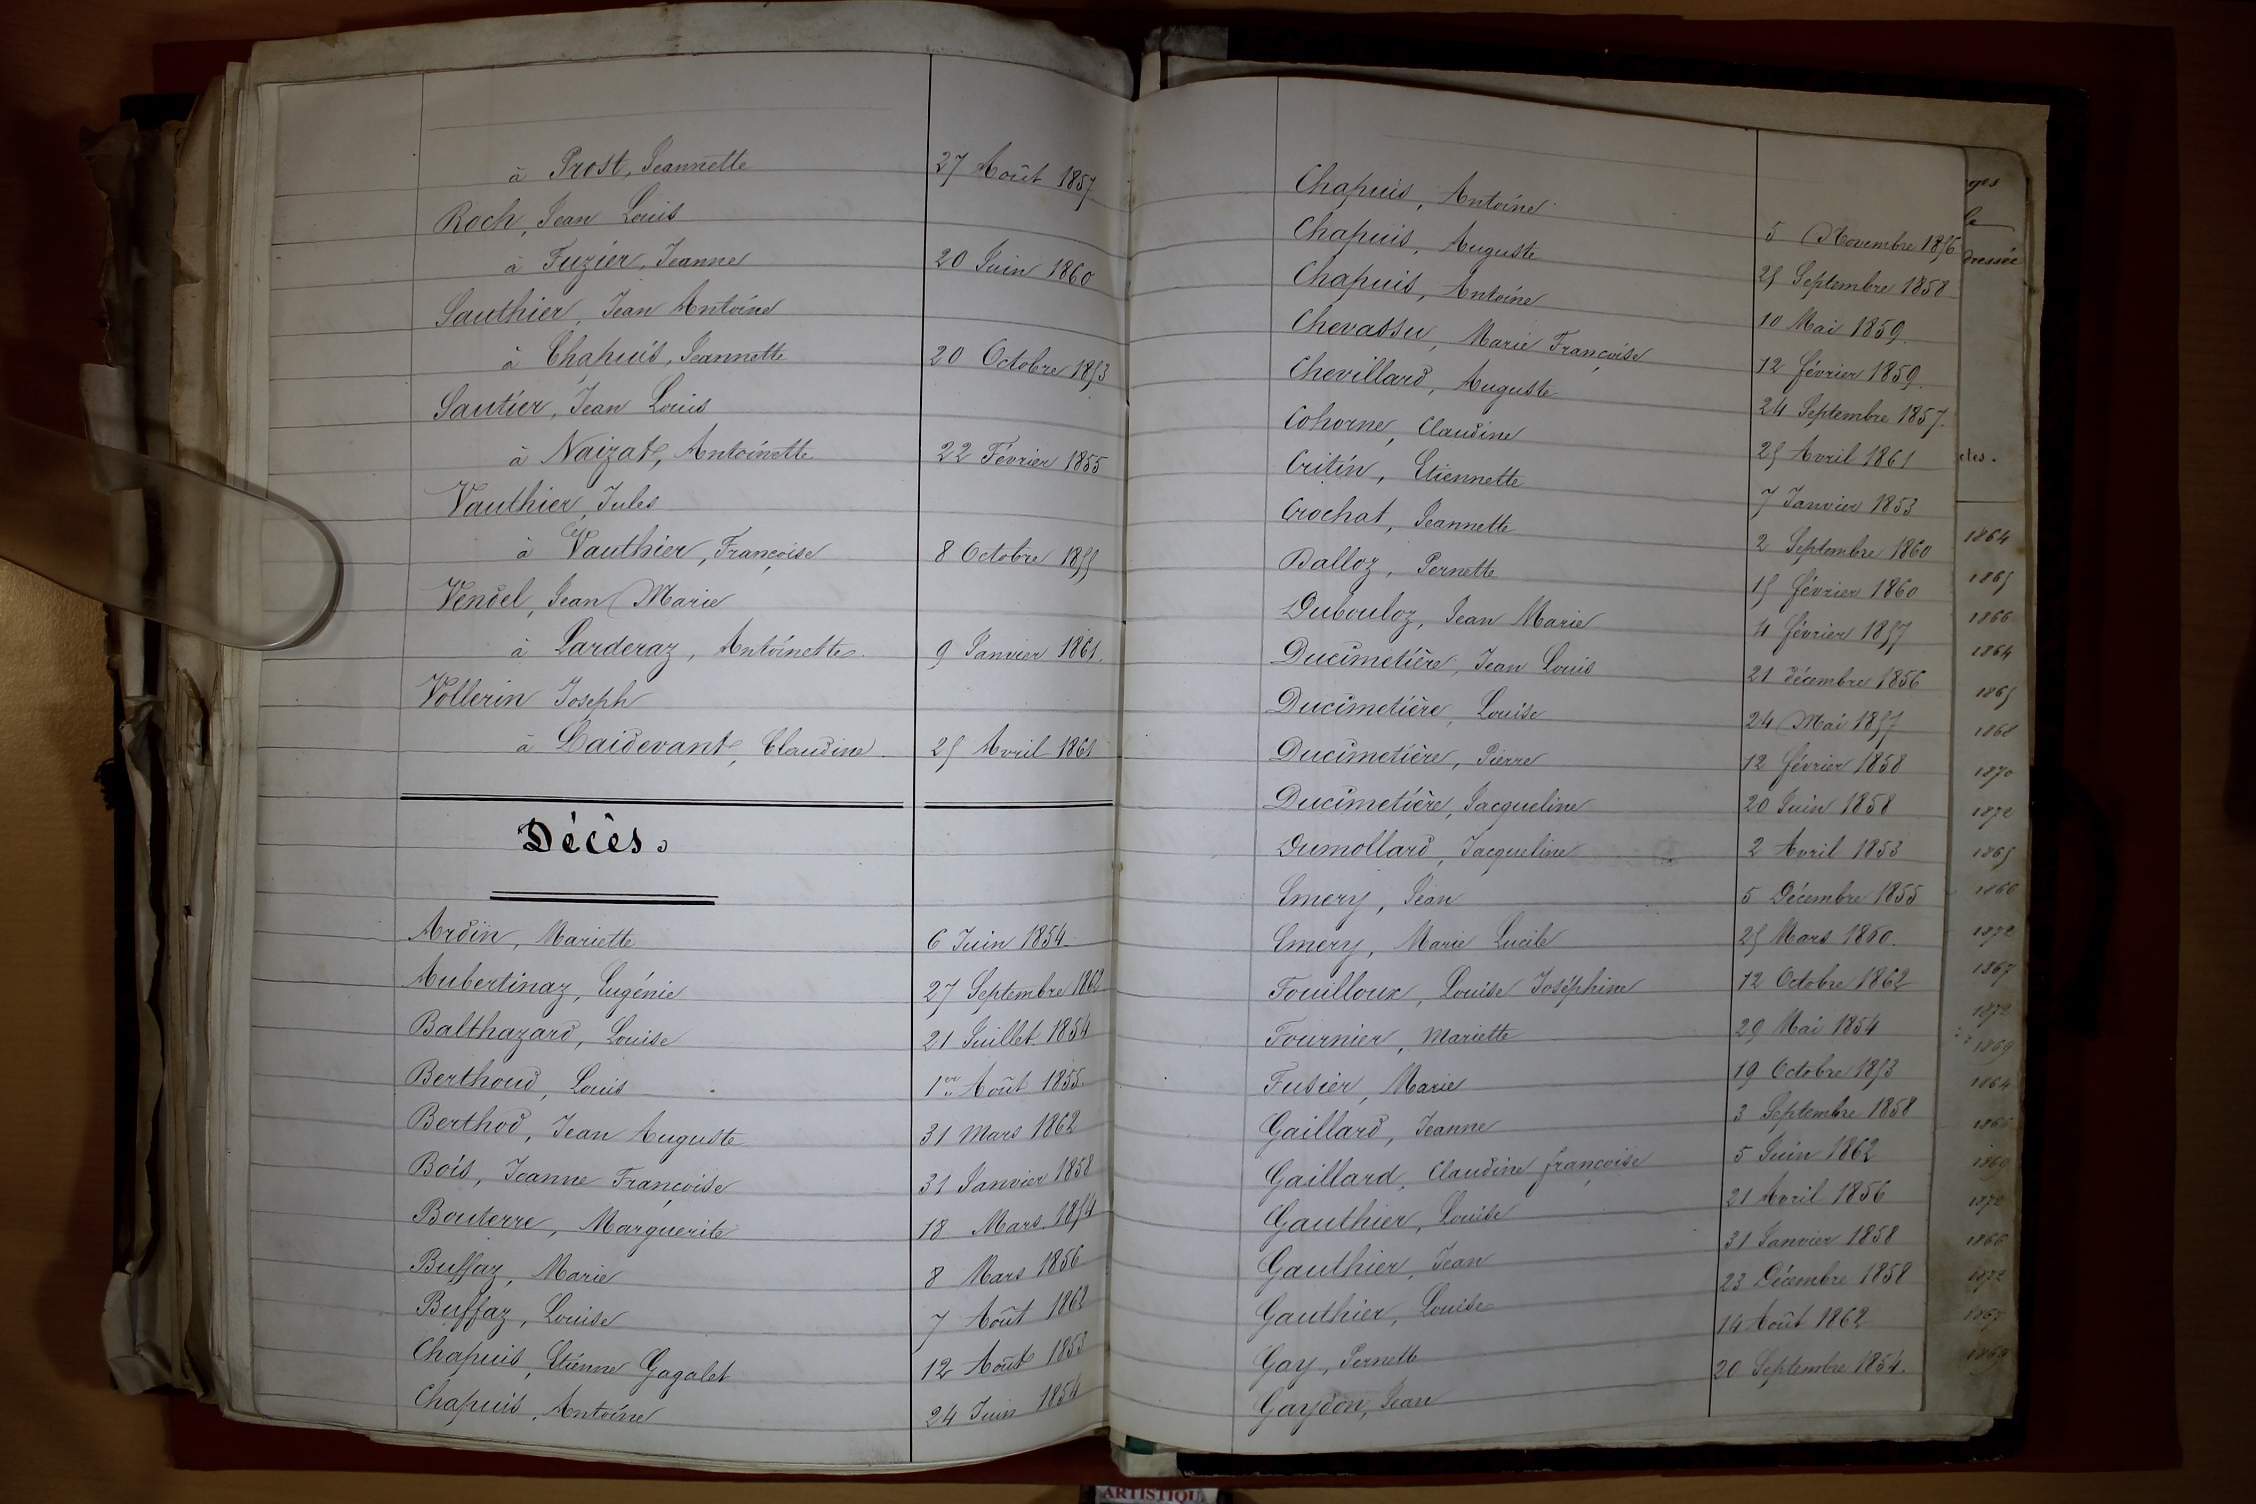 à Prost, Jeannette 27 Août 1857
Roch, Jean Louis
à Fuzier, Jeanne 20 Juin 1860
Sauthier, Jean Antoine
à Chapuis, Jeannette 20 Octobre 1853
Sautier, Jean Louis
à Naizat, Antoinette 22 Février 1855
Vauthier, Jules
à Vauthier, Françoise 8 Octobre 1855
Vendel, Jean Marie
à Larderaz, Antoinette. 9 Janvier 1861.
Vollerin Joseph
à Laidevant, Claudine. 25 Avril 1861
Décès.
Ardin, Mariette 6 Juin 1854
Aubertinaz, Eugénie 27 Septembre 1862
Balthazard, Louise 21 Juillet 1854
Berthoud, Louis 1er Août 1855.
Berthod, Jean Auguste 31 Mars 1862
Bois, Jeanne Françoise 31 Janvier 1858
Bouterre, Marguerite 18 Mars 1854
Buffaz, Marie 8 Mars 1856
Buffaz, Louise 7 Août 1862
Chapuis, Etienne Gagalet 12 Août 1853
Chapuis, Antoine 24 Juin 1854
Chapuis, Antoine 5 Novembre 1856
Chapuis, Auguste 25 Septembre 1858
Chapuis, Antoine 10 Mai 1859.
Chevassu, Marie Françoise 12 février 1859.
Chevillard, Auguste 24 Septembre 1857.
Cohorne, Claudine 25 Avril 1861
Critin, Etiennette 7 Janvier 1853
Crochat, Jeannette 2 Septembre 1860
Dalloz, Pernette 15 février 1860
Dubouloz, Jean Marie 4 février 1857
Ducimetière, Jean Louis 21 décembre 1856
Ducimetière, Louise 24 Mai 1857
Ducimetière, Pierre 12 février 1858
Ducimetière, Jacqueline 20 Juin 1858
Dumollard, Jacqueline 2 Avril 1853
Emery, Jean 5 Décembre 1855
Emery, Marie Lucile 25 Mars 1860.
Fouilloux, Louise Joséphine 12 Octobre 1862
Fournier, Mariette 29 Mai 1854
Fusier, Marie 19 Octobre 1853
Gaillard, Jeanne 3 Septembre 1858
Gaillard, Claudine françoise 5 Juin 1862
Gauthier, Louise 21 Avril 1856
Gauthier, Jean 31 Janvier 1858
Gauthier, Louise 23 Décembre 1858
Gay, Pernette 14 Août 1862
Gaydon, Jean 20 Septembre 1854.
le
dressée
ctes.
1864
1865
1866
1864
1865
1868
1870
1872
1865
1860
1872
1867
1872
1869
1864
1866
1869
1872
1866
1872
1867
1869
ARTISTIQU